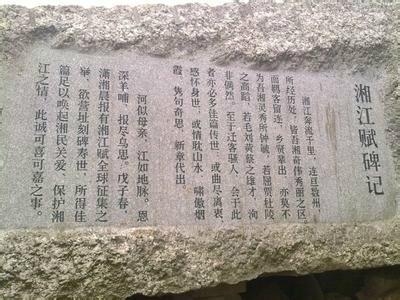 湘江赋碑记
湘江奔流千里，连亘数州，
所经历处，皆吾湘奇伟秀丽之区。
而羁客留连，乡贤辈出，亦莫不
为吾湘灵秀所钟毓，若屈贾杜陵
之高蹈，若毛刘黄蔡之雄才，洵
非偶然。至于迁客骚人，会于此
者亦必多佳篇传世，或曲尽离衷，
感怀身世，或情耽山水，啸傲烟
霞，隽句奇思，新章代出。
河似母亲，江如地脉。恩
深羊哺，报尽乌思。戊子春，
潇湘晨报有湘江赋全球征集之
举，欲营址刻碑寿世，所得佳
篇足以唤起湘民关爱、保护湘
江之情，此诚可喜可嘉之事。